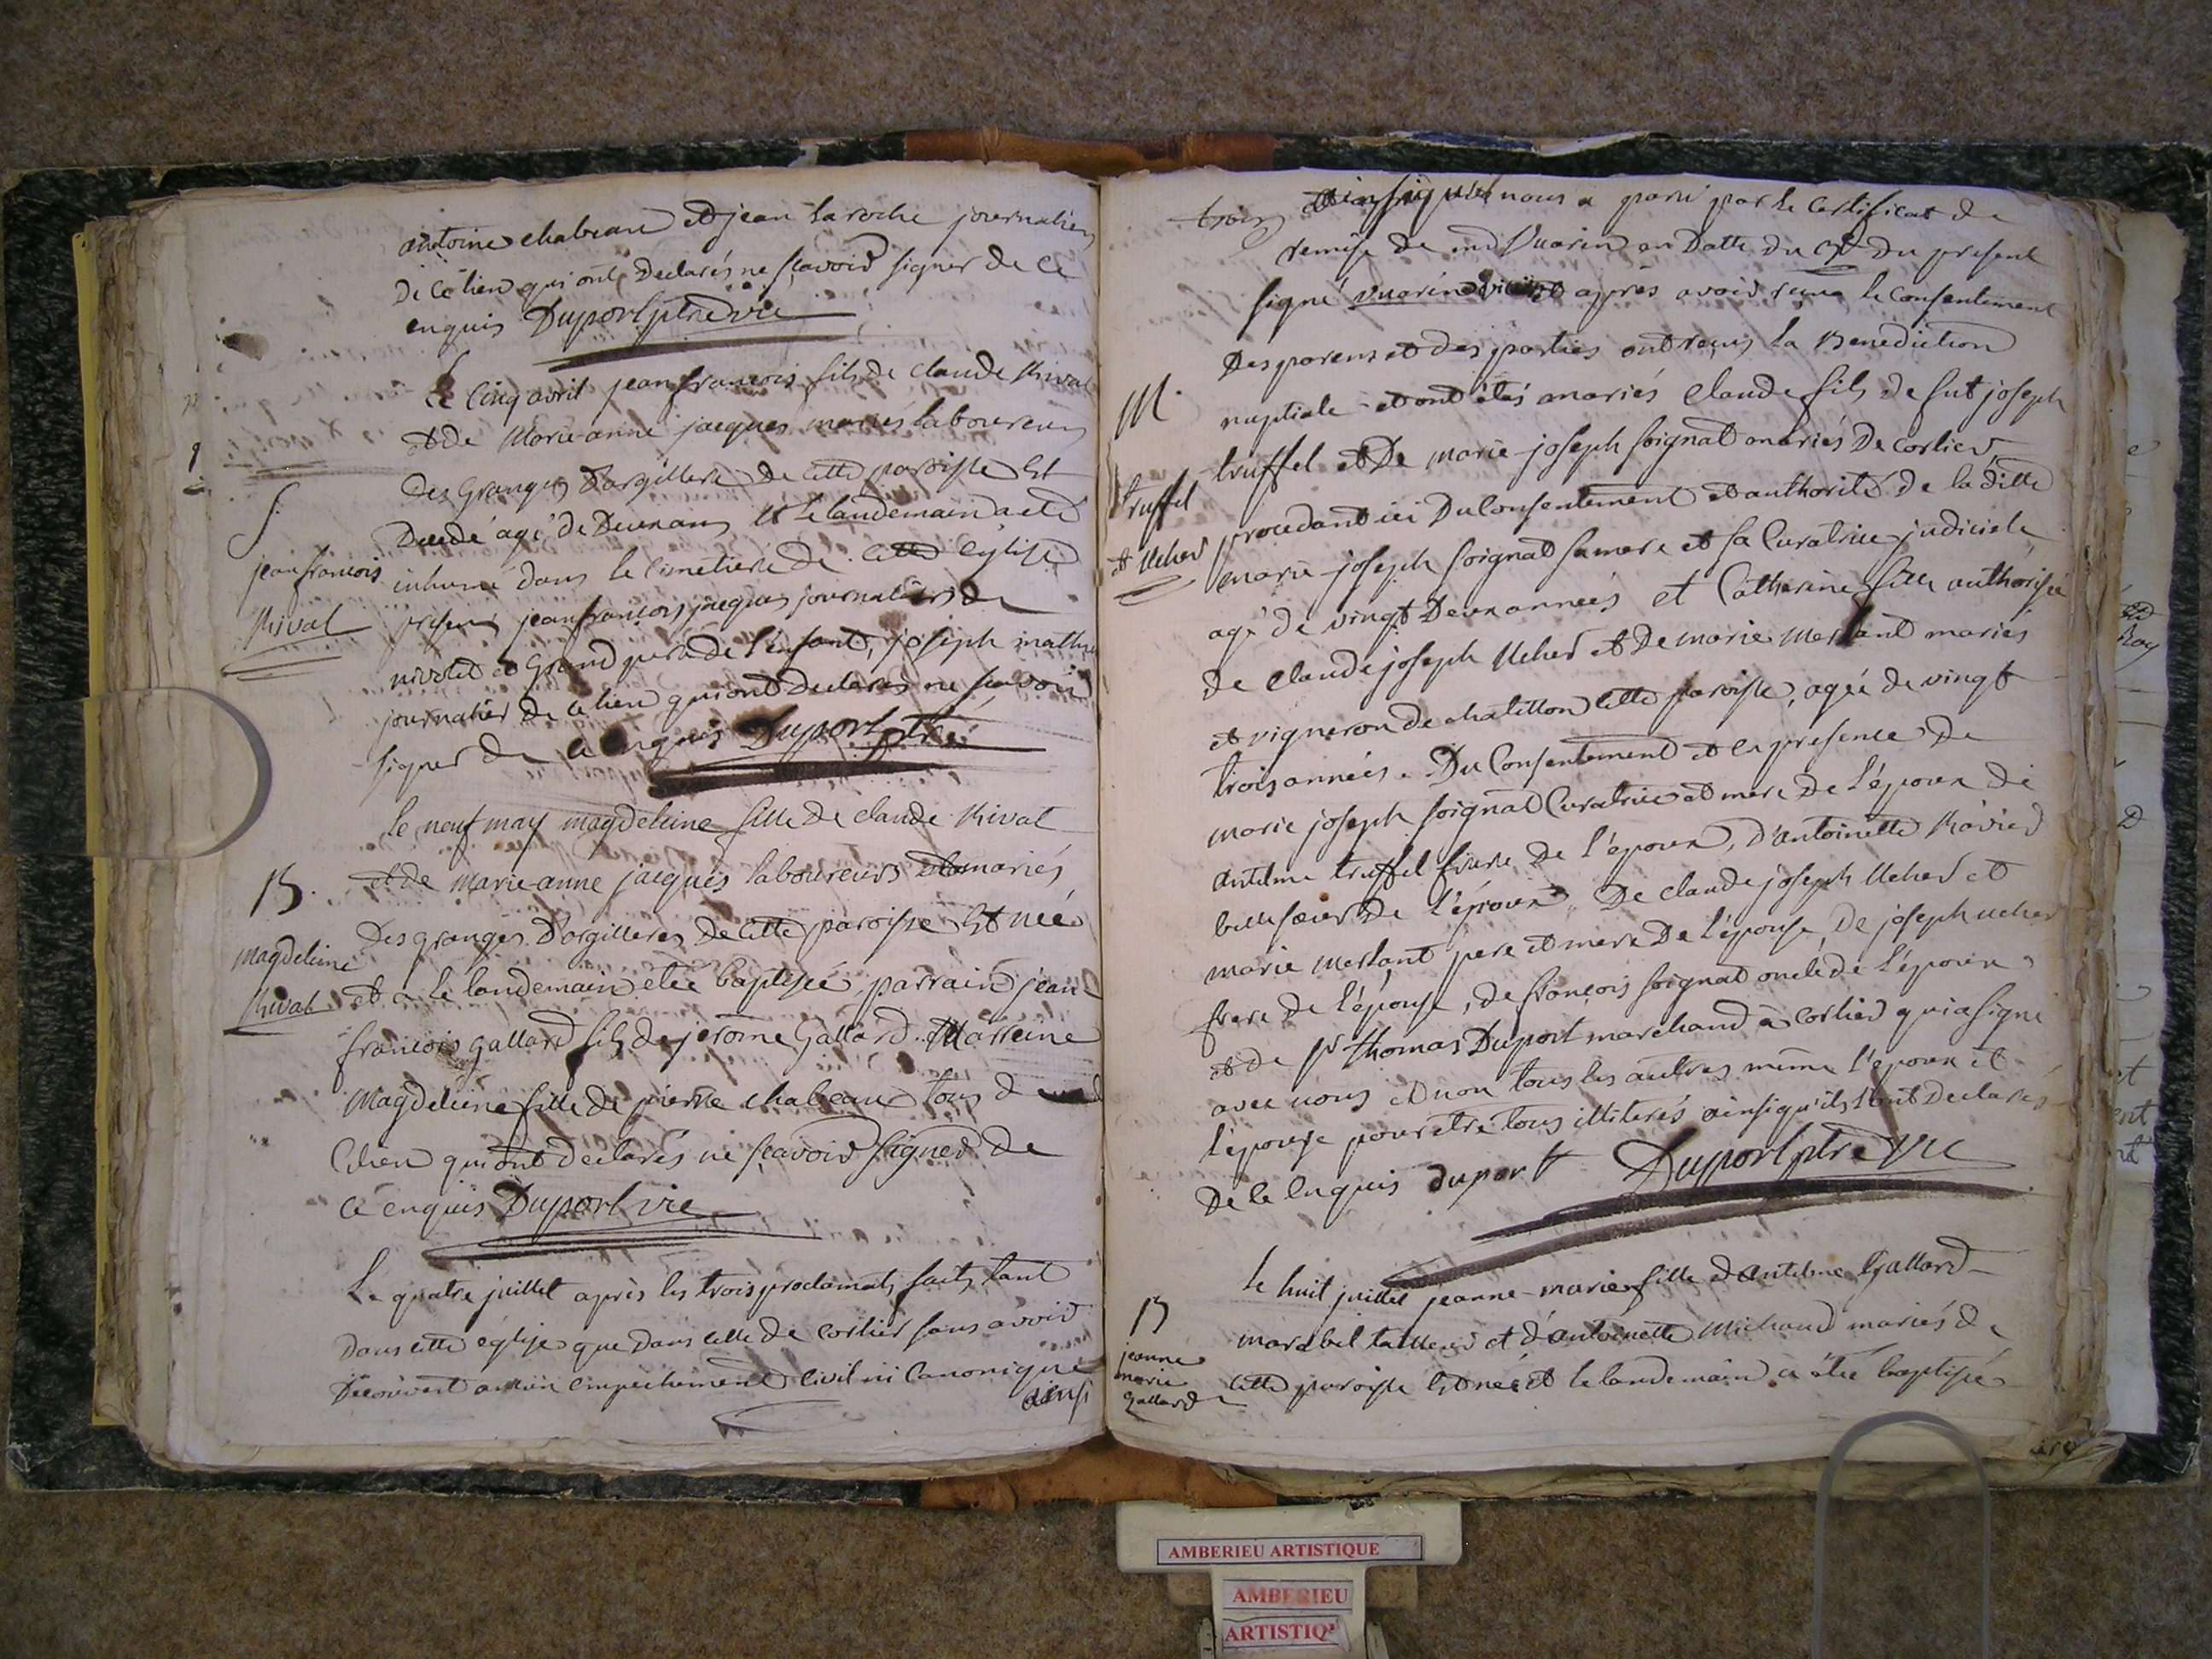 antoine chabeau et jean laroche journaliers
de ce lieu qui ont declarés ne sçavoir signer de ce
enquis Duport ptre vic
Le cinq avril jean francois fils de claude Rival
et de Marie-anne jacques mariés laboureurs
des granges d'argilleres de cette paroisse Est
decedé agé de Deux ans et le landemain a eté
inhumé dans le cimetiere de cette eglise
presens jean françois jacques journaliers de
et grand pere de l'enfant, joseph mathieu
journalier de ce lieu qui ont declarés ne sçavoir
signer de ce enquis Duport ptre
S.
jean francois
Rival
Le neuf may magdeleine fille de claude Rival
et de marie-anne jacques laboureurs mariés
Des granges D'argilleres De cette paroisse Est née
et a le landemain etée baptisée, parrain jean
francois gallard fils de jerome Gallard. Marreine
Magdeleine fille de pierre chabeau tous de
ce lieu qui ont declarés ne sçavoir signer de
ce enquis Duport vic
B.
magdeleine
Rival
Le quatre juillet après les trois proclamats faits tant
dans cette église que dans celle de corlier sans avoir
Découvert aucun empechement civil ni canonique
ainsi
trois nous a parû par le certificat de
remise de md Vuarin en Datte du du present
signé vuarin après avoir reçu le consentement
des parens et des parties ont reçus la Benediction
nuptiale et ont étés mariés Claude fils de fut joseph
truffel et De marie-joseph soignat mariés De corlier,
procedant ici Du consentement et authorité de la ditte
marie-joseph soignat sa mere et sa curatrice judiciele
agé de vingt Deux années et Catherine fille authorisée
de claude joseph Ucher et de marie Merlant mariés
et vigneron de chatillon cette paroisse, agée de vingt
trois années. Du Consentement et en presence de
marie joseph soignat Curatrice et mere De l'époux de
antelme truffel frere De l'époux, d'antoinette Ravier
belle soeur De l'époux, De claude joseph Ucher et
marie merlant pere et mere De l'épouse, De joseph ucher
frere de l'épouse, de françois soignat oncle de l'époux
et de Sr thomas Duport marchand a corlier qui a signé
avec nous et non tous les autres même l'époux et
l'épouse pour etre tous illiterés ainsi qu'ils l'ont declarés
De ce Enquis duport Duport ptre vic
M.
truffel
et Ucher
Le huit juillet jeanne-marie fille d'antelme Gallard
marabel tailleur et d'antoinette Michaud mariés de
cette paroisse Est née et le landemain a étée baptisée
B
jeanne
marie
Gallard
AMBERIEU ARTISTIQUE
AMBERIEU
ARTISTIQ